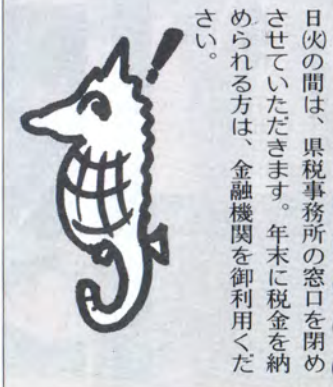 日㈫の間、県税事務所の窓口を閉め
させていただきます。年末に税金を納
められる方は、金融機関を御利用くだ
さい。
!